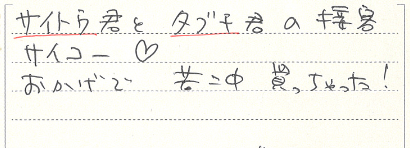 サイトウ君と タブチ君の接客
サイコー♡
おかげで 買っちゃった!